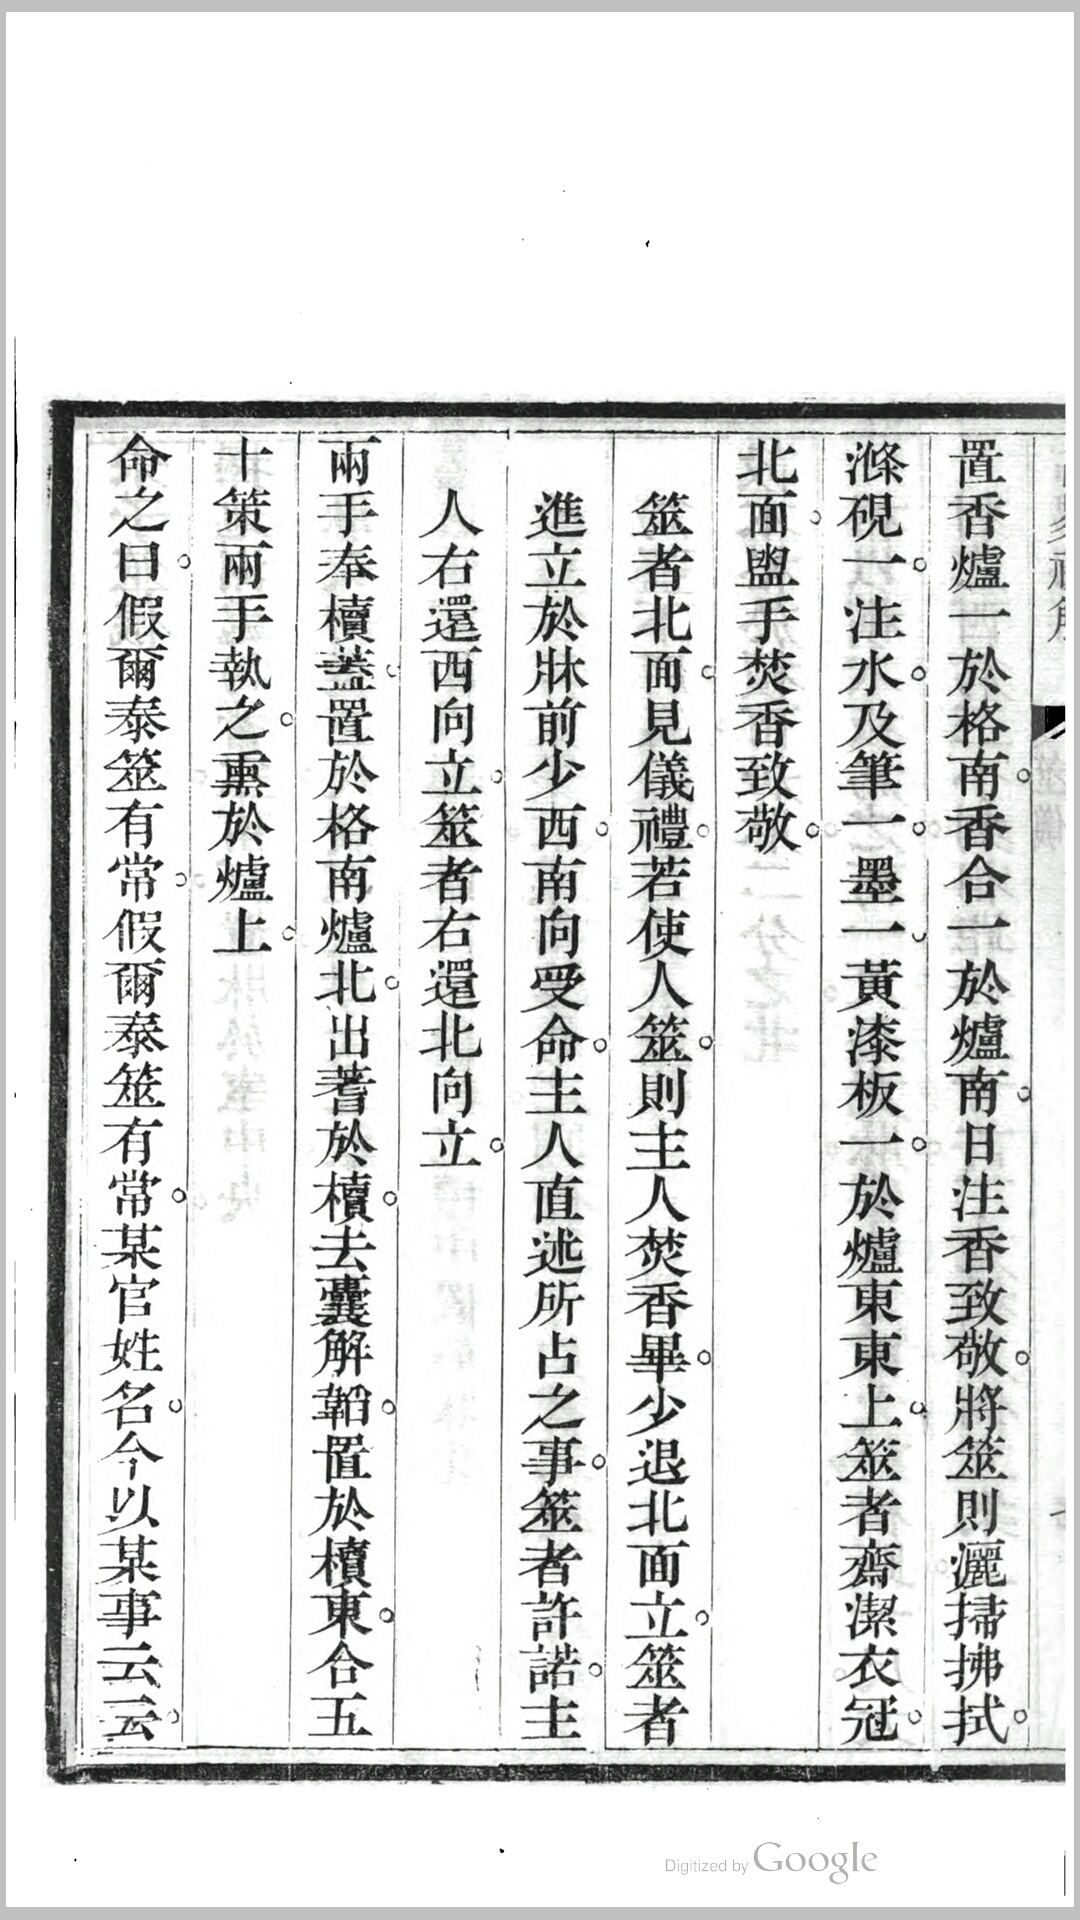 置香爐一於格南香合一於爐南日注香致敬將筮則灑掃拂拭
滌硯一注水及筆一墨一黃漆板一於爐東東上筮者齋潔衣冠
北面盥手焚香致敬
筮者北面見儀禮若使人筮則主人焚香畢少退北面立筮者
進立於牀前少西南向受命主人直述所占之事筮者許諾主
人右還西向立筮者右還北向立
兩手奉櫝蓋置於格南爐北出蓍於櫝去囊解韜置於櫝東合五
十策兩手執之熏於爐上
命之曰假爾泰筮有常假爾泰筮有常某官姓名今以某事云云
Digitized by Google